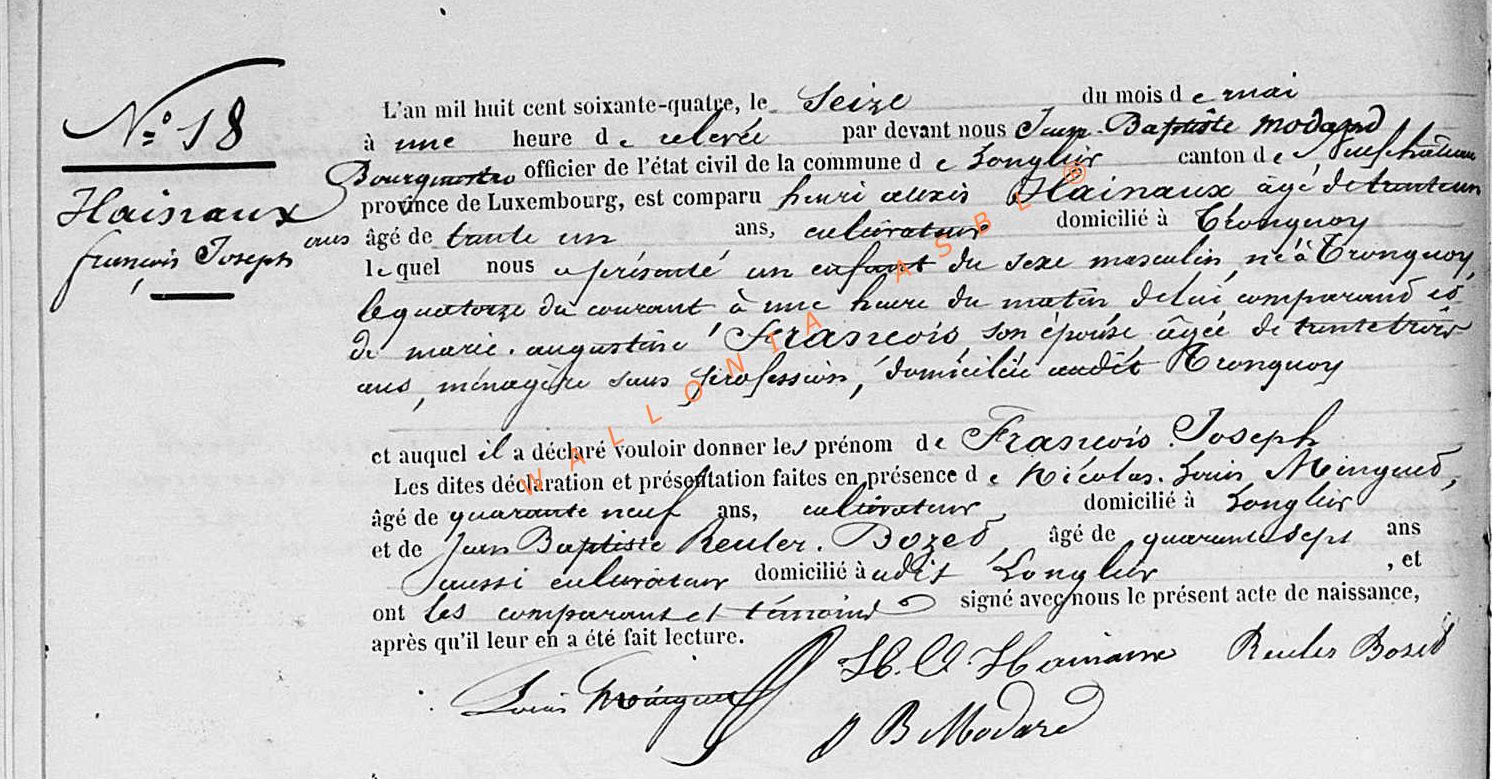 N° 18
Hainaux
françois Joseph
L'an mil huit cent soixante-quatre, le Seize du mois de mai
à une heure de relevée par devant nous Jean-Baptiste Modard
Bourgmestre officier de l'état civil de la commune de Longlier canton de Neufchâteau
province de Luxembourg, est comparu henri alexis Hainaux âgé de trente un
ans âgé de trente un ans, cultivateur domicilié à Tronquoy
lequel nous a présenté un enfant du sexe masculin, né à Tronquoy,
le quatorze du courant à une heure du matin de lui comparant et
de marie-augustine François son épouse, âgée de trente trois
ans, ménagère sans profession, domiciliée audit Tronquoy
et auquel il a déclaré vouloir donner les prénom de François Joseph
Les dites déclaration et présentation faites en présence de Nicolas-Louis Minguet,
âgé de quarante neuf ans, cultivateur, domicilié à Longlier
et de Jean Baptiste Reuler-Bozet, âgé de quarante sept ans
aussi cultivateur domicilié à udit Longlier, et
ont les comparant et témoins signé avec nous le présent acte de naissance,
après qu'il leur en a été fait lecture.
H. A. Hainaux Reuler Bozet
Louis Minguet
J B Modard
WALLONIA ASBL ®